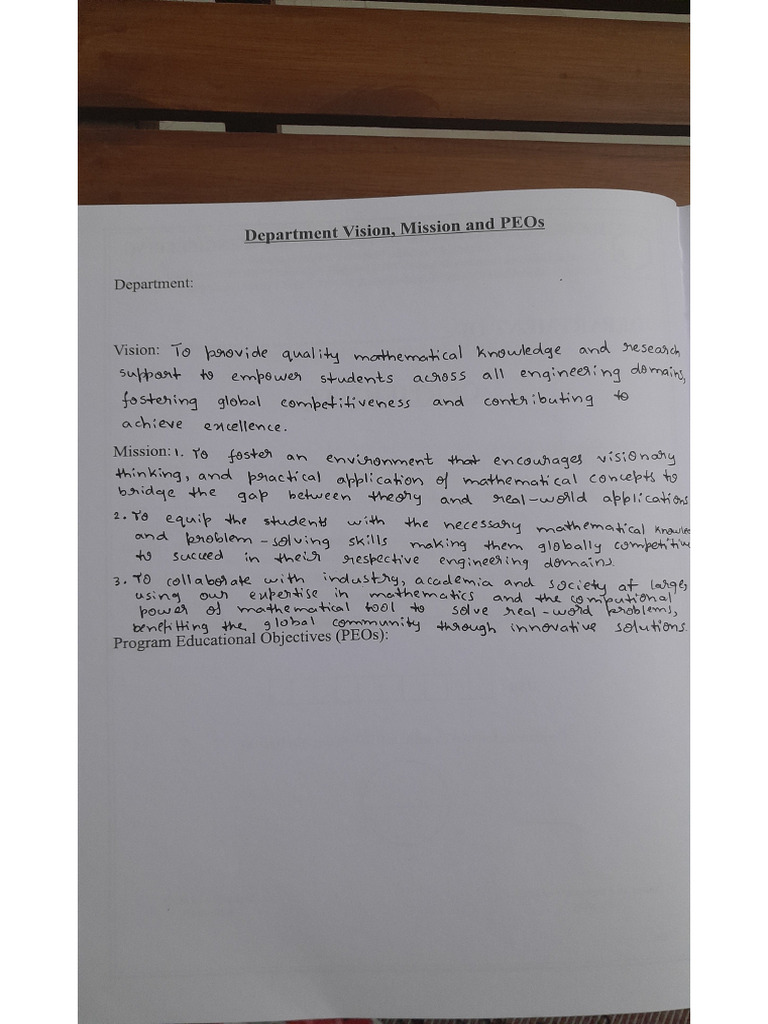 Department Vision, Mission and PEOs
Department:
Vision: To provide quality mathematical knowledge and research
support to empower students across all engineering domains,
fostering global competitiveness and contributing to
achieve excellence.
Mission: 1. To foster an environment that encourages visionary
thinking, and practical application of mathematical concepts to
bridge the gap between theory and real-world applications
2. To equip the students with the necessary mathematical knowle
and problem-solving skills making them globally competitive
to succeed in their respective engineering domains.
3. To collaborate with industry, academia and society at large,
using our expertise in mathematics and the computional
power of mathematical tool to solve real-word problems,
benefitting the global community through innovative solutions.
Program Educational Objectives (PEOs):